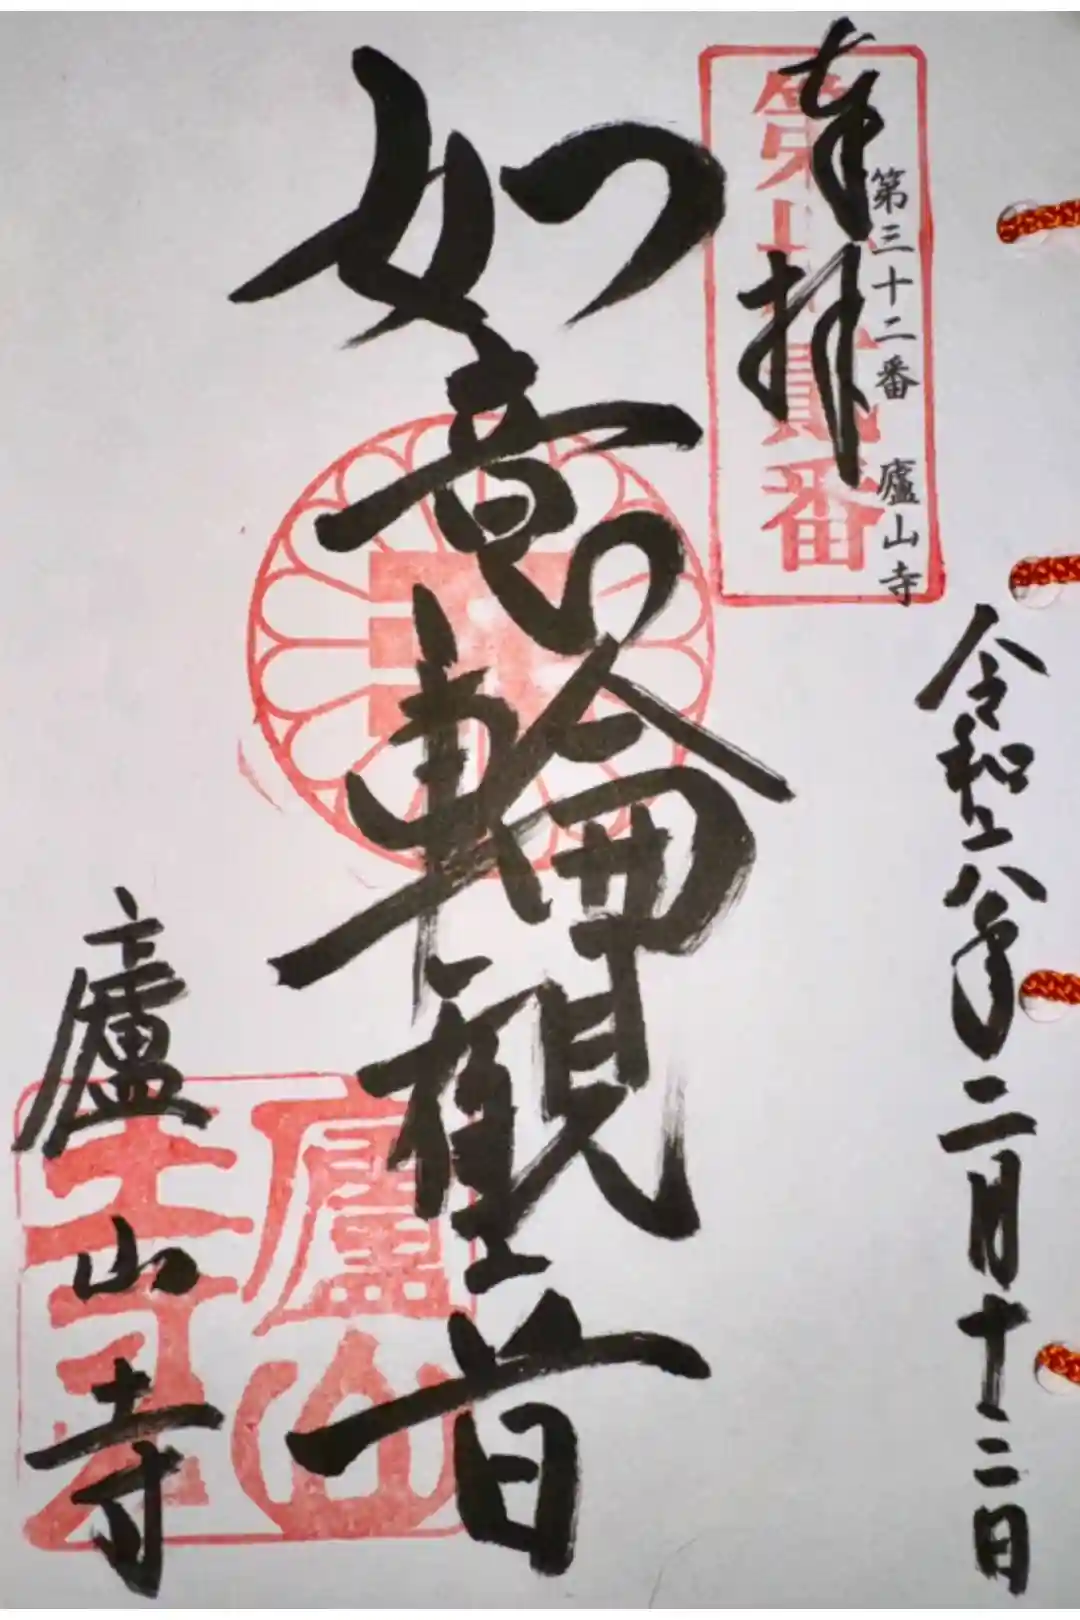 令和八年二月十二日
第三十二番 廬山寺
奉拝
第卅貳番
如意輪観音
廬山寺
廬山